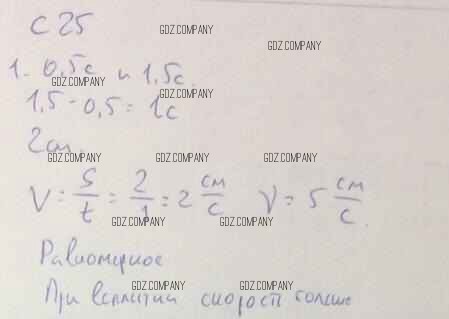 с 25
GDZ.COMPANY
GDZ.COMPANY
1. 0,5с и 1,5с.
GDZ.COMPANY GDZ.COMPANY
1,5 - 0,5 = 1с
2см.
GDZ.COMPANY GDZ.COMPANY GDZ.COMPANY
V = S/t = 2/1 = 2 см/с V = 5 см/с.
GDZ.COMPANY GDZ.COMPANY
Равномерное
GDZ.COMPANY GDZ.COMPANY
При скорости больше